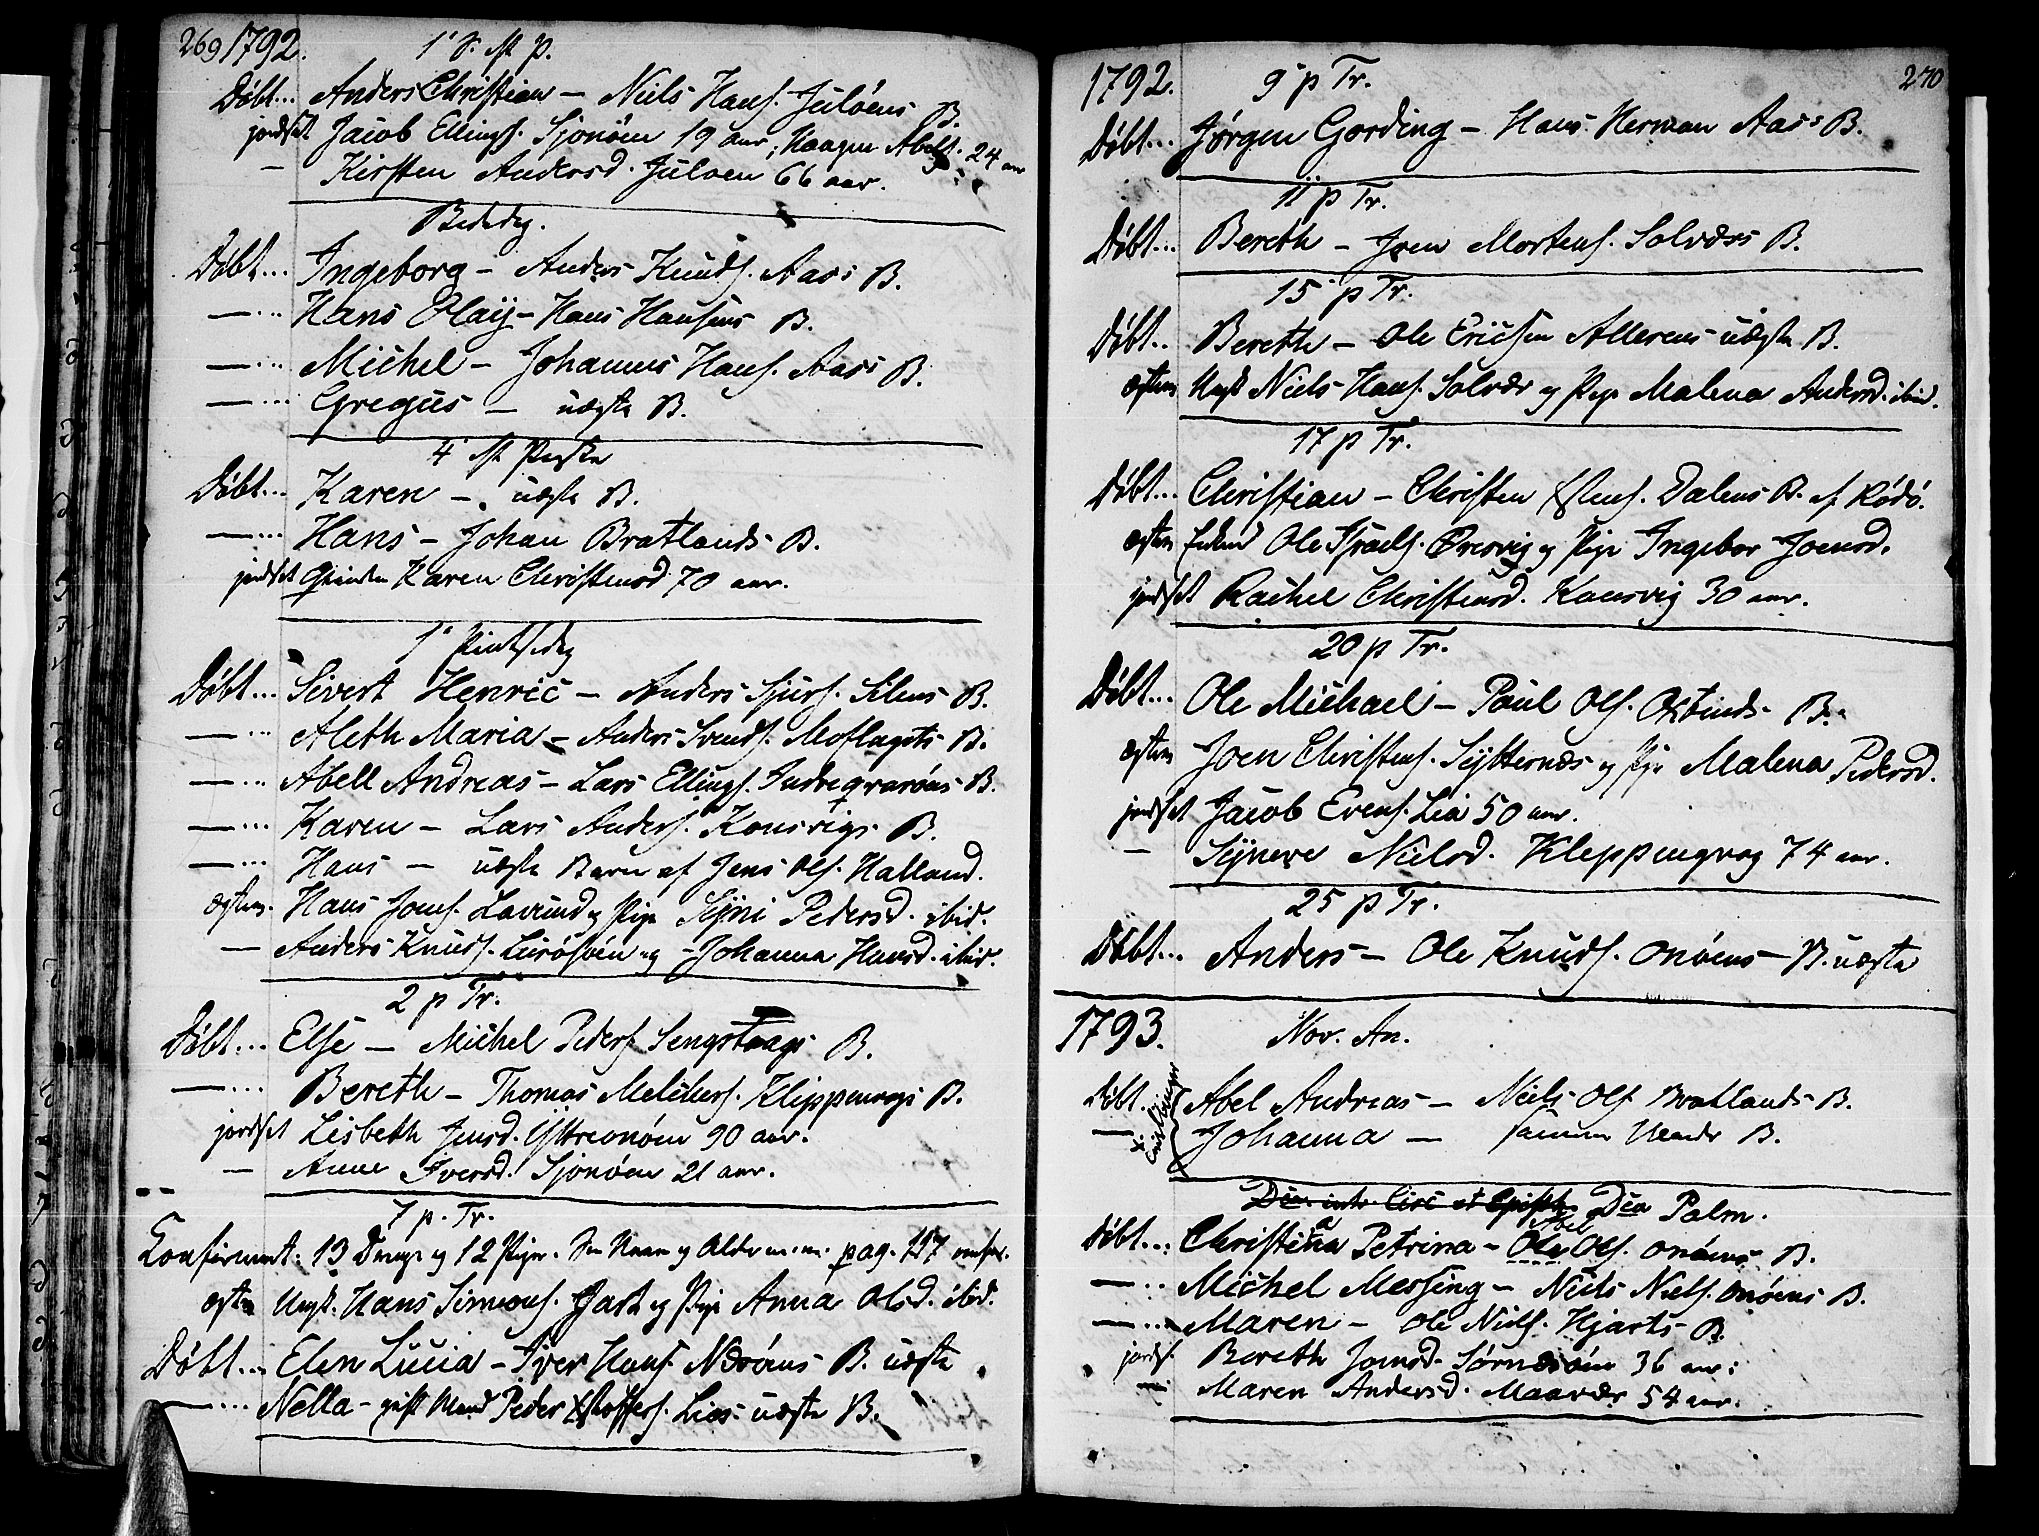 269 1792. 1' S. p.
Døbt... Anders Christian – Niels Hans. Juløens B.
jordset Jacob Ellings. Sjonøen 19 aar, Haagen Abels. 24 aar
– Kirsten Andersd. Juløen 66 aar.
Bededag.
Døbt... Ingeborg – Anders Knuds. Aas: B.
—... Hans Olaij – Hans Hansens B.
—... Michel – Johannes Hans. Aas: B.
—... Gregus – uægte B.
4 Paaske
Døbt... Karen – uægte B.
—... Hans – Johan Bratlands B.
jordset Qvinden Karen Christensd 70 aar.
1' Pintsedag
Døbt... Sivert Henric – Anders Sjurs. Silens B.
—... Aleth Maria – Anders Svends. B.
—... Abell Andreas – Lars Ellings. Indreqvarøens B.
—... Karen – Lars Anders. Konsvigs B.
—... Hans – uægte Barn af Jens Ols. Halland.
ægtev. Hans Joens. Lovund og Pige Sijni Pedersd. ibid.
— Anders Knuds. Lurøsøen og – Johanna Hansd. ibid.
2 p Tr.
Døbt... Else – Michel Peders. B.
—... Bereth – Thomas Melchers. Kleppenvogs B.
jordset Lisbeth Jensd. Yttreonøen 90 aar.
— Anne Iversd. Sjonøen 21 aar.
7 p. Tr.
Confirmert: 13 Drenge og 12 Piger. See Navn og Alder m.m. pag. 117
ægtev Ungk. Hans Simons. og Pige Anna Olsd. ibid.
Døbt... Elen Lucia – Iver Hans. Næsøens B. uægte
—... Nella – gift Mand Peder Xstoffers. Lies uægte B.
1792. 9' p Tr. 270
Døbt... Jørgen Gording – Hans Herman Aas: B.
11 p Tr.
Døbt... Bereth – Joen Mortens. Solværs B.
15 p Tr.
Døbt.. Bereth – Ole Ericsen Allerens uægte B.
ægtev Ungk Niels Hans. Solvær og Pige Malena Andersd. ibid.
17 p Tr.
Døbt... Christian – Christen Dalens B. af Rødø.
ægtev Enkmd Ole Israels. Øresvig og Pige Ingebor Joensd.
jordset Rachel Christensd. Konsvig 30 aar.
20 p Tr.
Døbt... Ole Michael – Paul Ols. B.
ægtev Joen Christens. Sytternæs og Pige Malena Pedersd.
jordset Jacob Evens. Lia 50 aar.
— Sijneve Nielsd. Kleppenqvog 74 aar.
25 p Tr.
Døbt... Anders – Ole Knuds. Onøens – B. uægte
1793. Nov. An.
Døbt.. Abel Andreas – Niels Ols Bratlands B.
— Johanna – B.
Dca. intr. Circ et Epiph. Dca Palm.
Døbt... Christina Petrina – Ole Abel Ols. Onøens B.
—.. Michel Messing – Niels Niels. Onøens B.
—... Maren – Ole Niels. Hjarts B.
jords. Bereth Joensd. Sørnæsøen 36 aar:
— Maren Andersd. Maavær 54 aar.